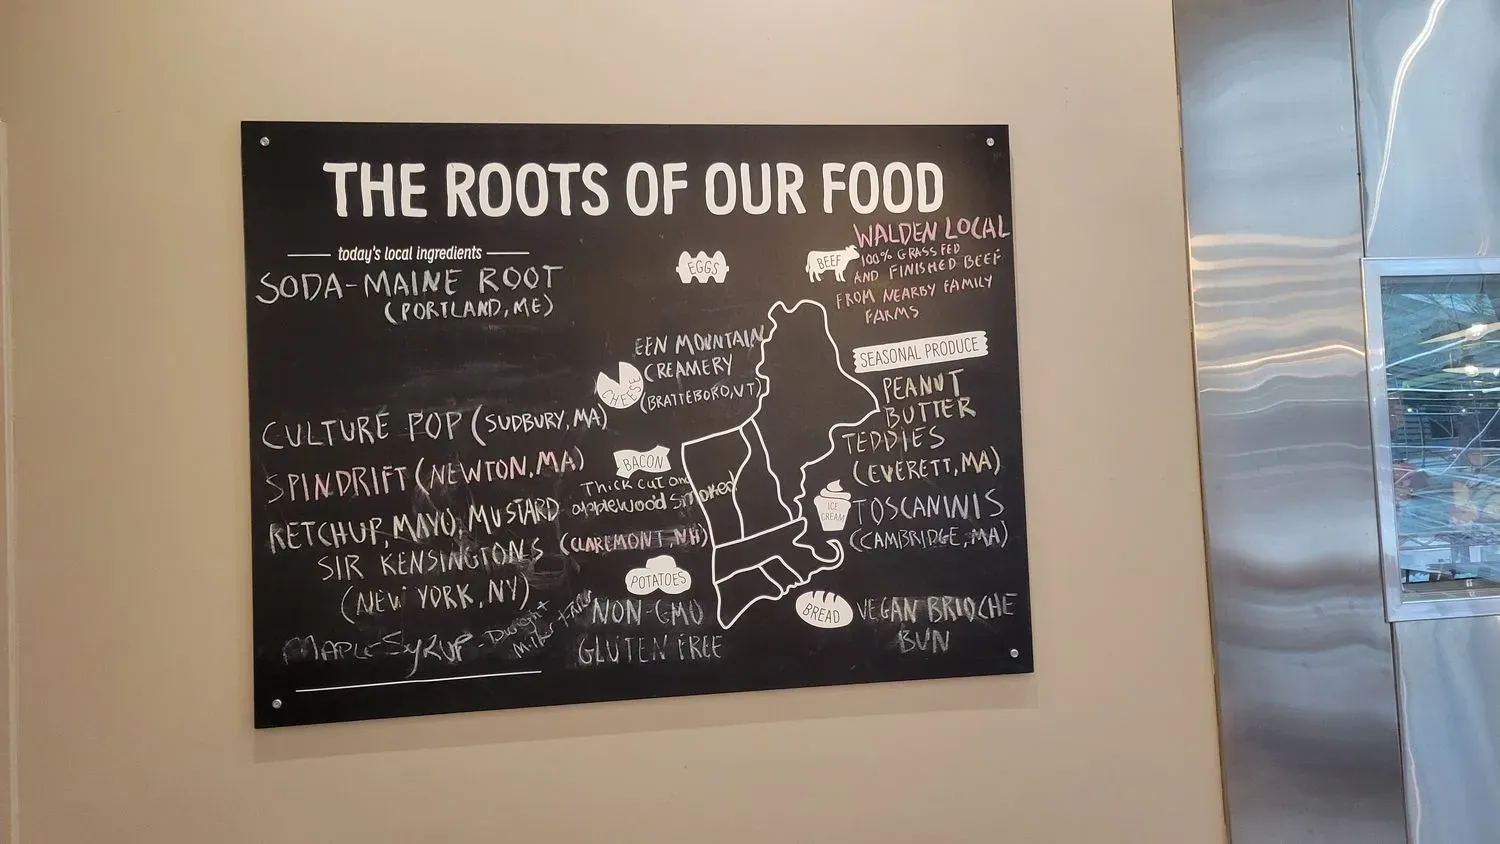 THE ROOTS OF OUR FOOD
today's local ingredients
SODA-MAINE ROOT
(PORTLAND, ME)
CULTURE POP (SUDBURY, MA)
SPINDRIFT (NEWTON, MA)
KETCHUP, MAYO, MUSTARD
SIR KENSINGTONS
(NEW YORK, NY)
MAPLE SYRUP - Dwight
EGGS
EEN MOUNTAIN
CREAMERY
(BRATTEBORO, VT)
CHEESE
BACON
Thick cut and
applewood smoked
(CLAREMONT, NH)
POTATOES
NON-GMO
GLUTEN FREE
BEEF
WALDEN LOCAL
100% GRASS FED
AND FINISHED BEEF
FROM NEARBY FAMILY
FARMS
SEASONAL PRODUCE
PEANUT
BUTTER
TEDDIES
(EVERETT, MA)
ICE
CREAM
TOSCANINIS
(CAMBRIDGE, MA)
BREAD
VEGAN BRIOCHE
BUN